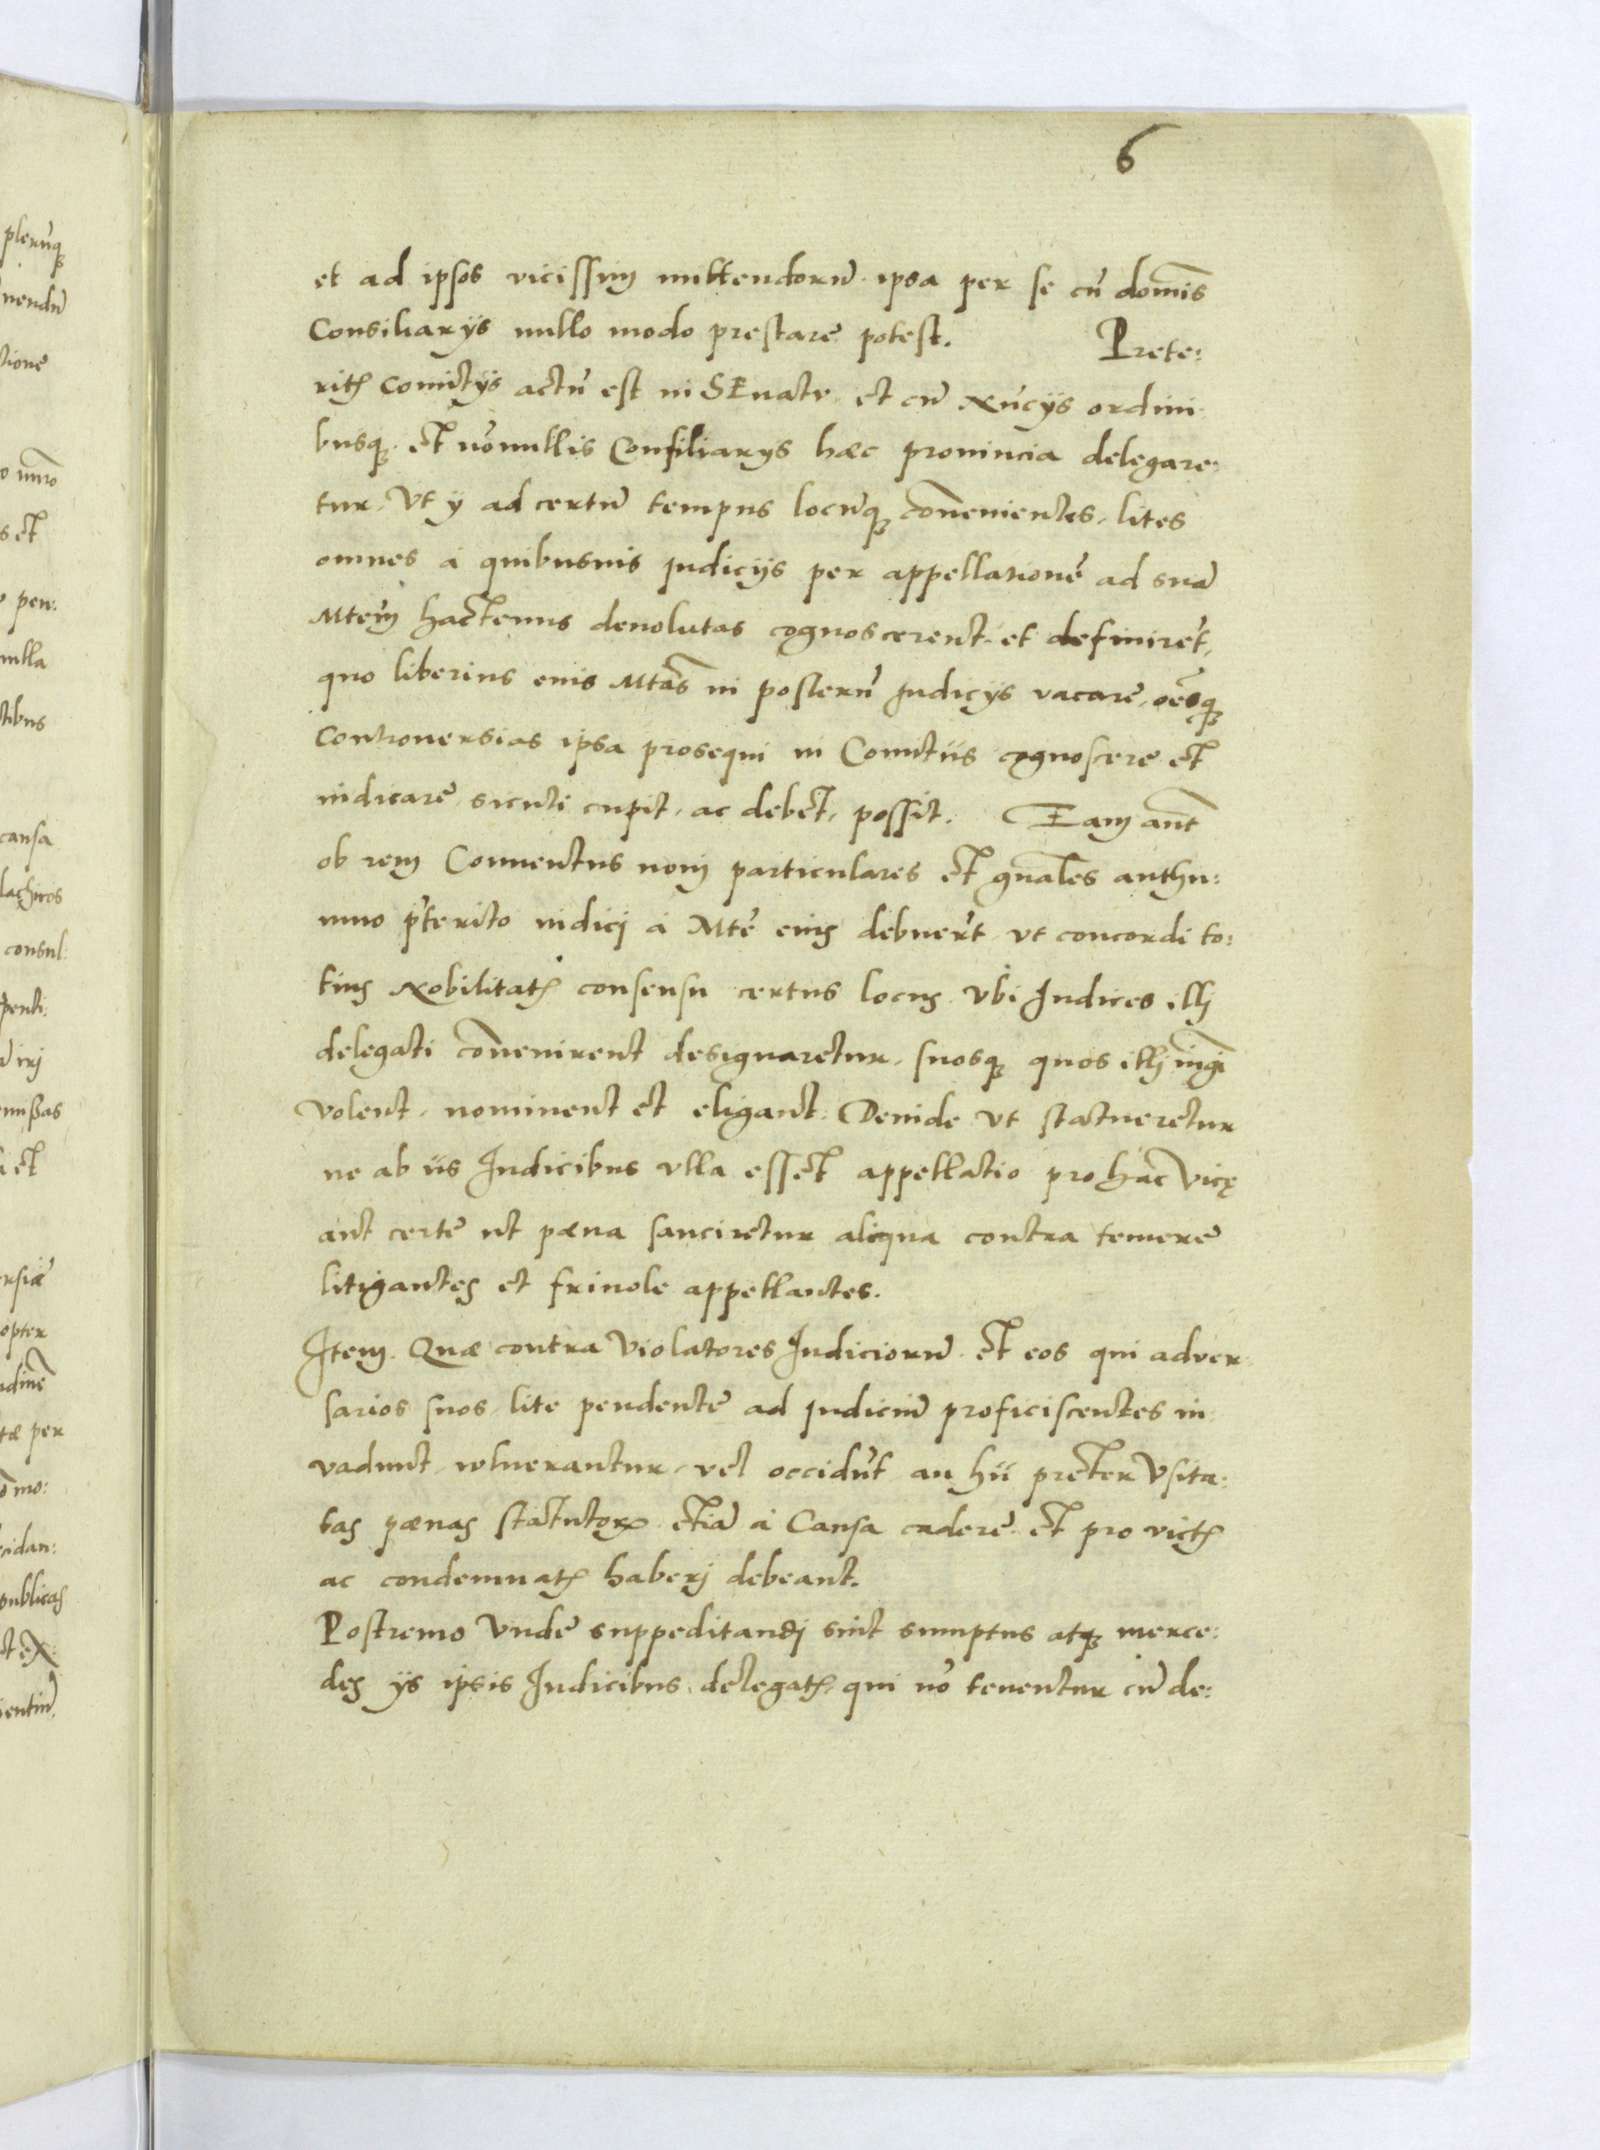 6
et ad ipsos vicissim mittendorũ ipsa per se cũ domĩs
Consiliarijs nullo modo prestare potest. Prete:
ritꝭ Comitijs actũ est in SEnatu et cũ Nũcijs ordini
busqꝫ et nõnullis Consiliarijs hæc prouincia delegare:
tur. Vt ij ad certũ tempus locũqꝫ cõuenientes, lites
omnes à quibusuis Iudicijs per appellationẽ ad suã
Mtẽm hactenus deuolutas cognoscerent et definirẽt,
quo liberius eius Mtãs in posterũ Iudicijs vacare, oẽsqꝫ
Controuersias ipsa prosequi in Comitiis cognoscere et
iudicare sicuti cupit, ac debet, possit. Eam aũt
ob rem Conuentus non particulares et gñales authu:
mno p̃terito indici à Mtẽ eius debuerũt vt concordi to:
tius Nobilitatꝭ consensu certus locus vbi Iudices illi
delegati cõuenirent designaretur, suosqꝫ quos illi
volent, nominent et eligant. Deinde vt statueretur
ne ab iis Iudicibus vlla esset appellatio pro hac vice
aut certe ut pæna sanciretur aliqua contra temere
litigantes et friuole appellantes.
Item. Quæ contra Violatores Iudiciorũ et eos qui aduer
sarios suos lite pendente ad Iudiciũ proficiscentes in
vadunt, vulnerantur, vel occidũt an hii preter Vsita:
tas pænas statutoꝝ etiã à Causa cadere et pro victꝭ
ac condemnatꝭ haberi debeant.
Postremo Vnde suppeditandi sint sumptus atqꝫ merce:
des ijs ipsis Iudicibus delegatꝭ, qui nõ tenentur cũ de: